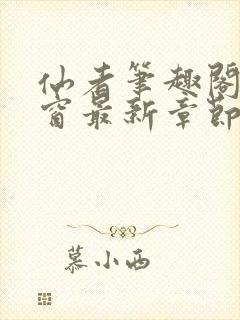 仙者筆趣閣
窗最新章節
慕小西